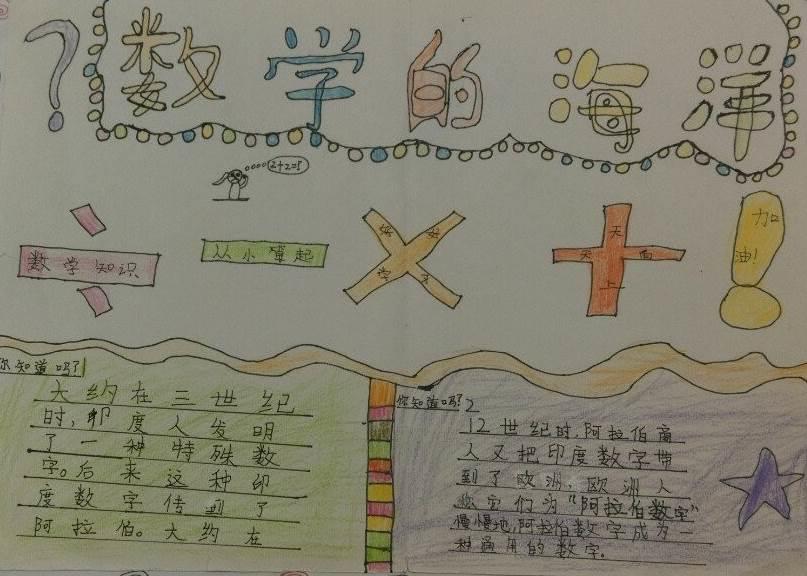 ?数学的海洋
2+2=5
数学知识
从小算起
好好学
天天向上
加油!
你知道吗?1
大约在三世纪
时,印度人发明
了一种特殊数
字。后来这种印
度数字传到了
阿拉伯。大约在
你知道吗?2
12世纪时,阿拉伯商
人又把印度数字带
到了欧洲,欧洲人
称它们为“阿拉伯数字”
慢慢地,阿拉伯数字成为一
种通用的数字。